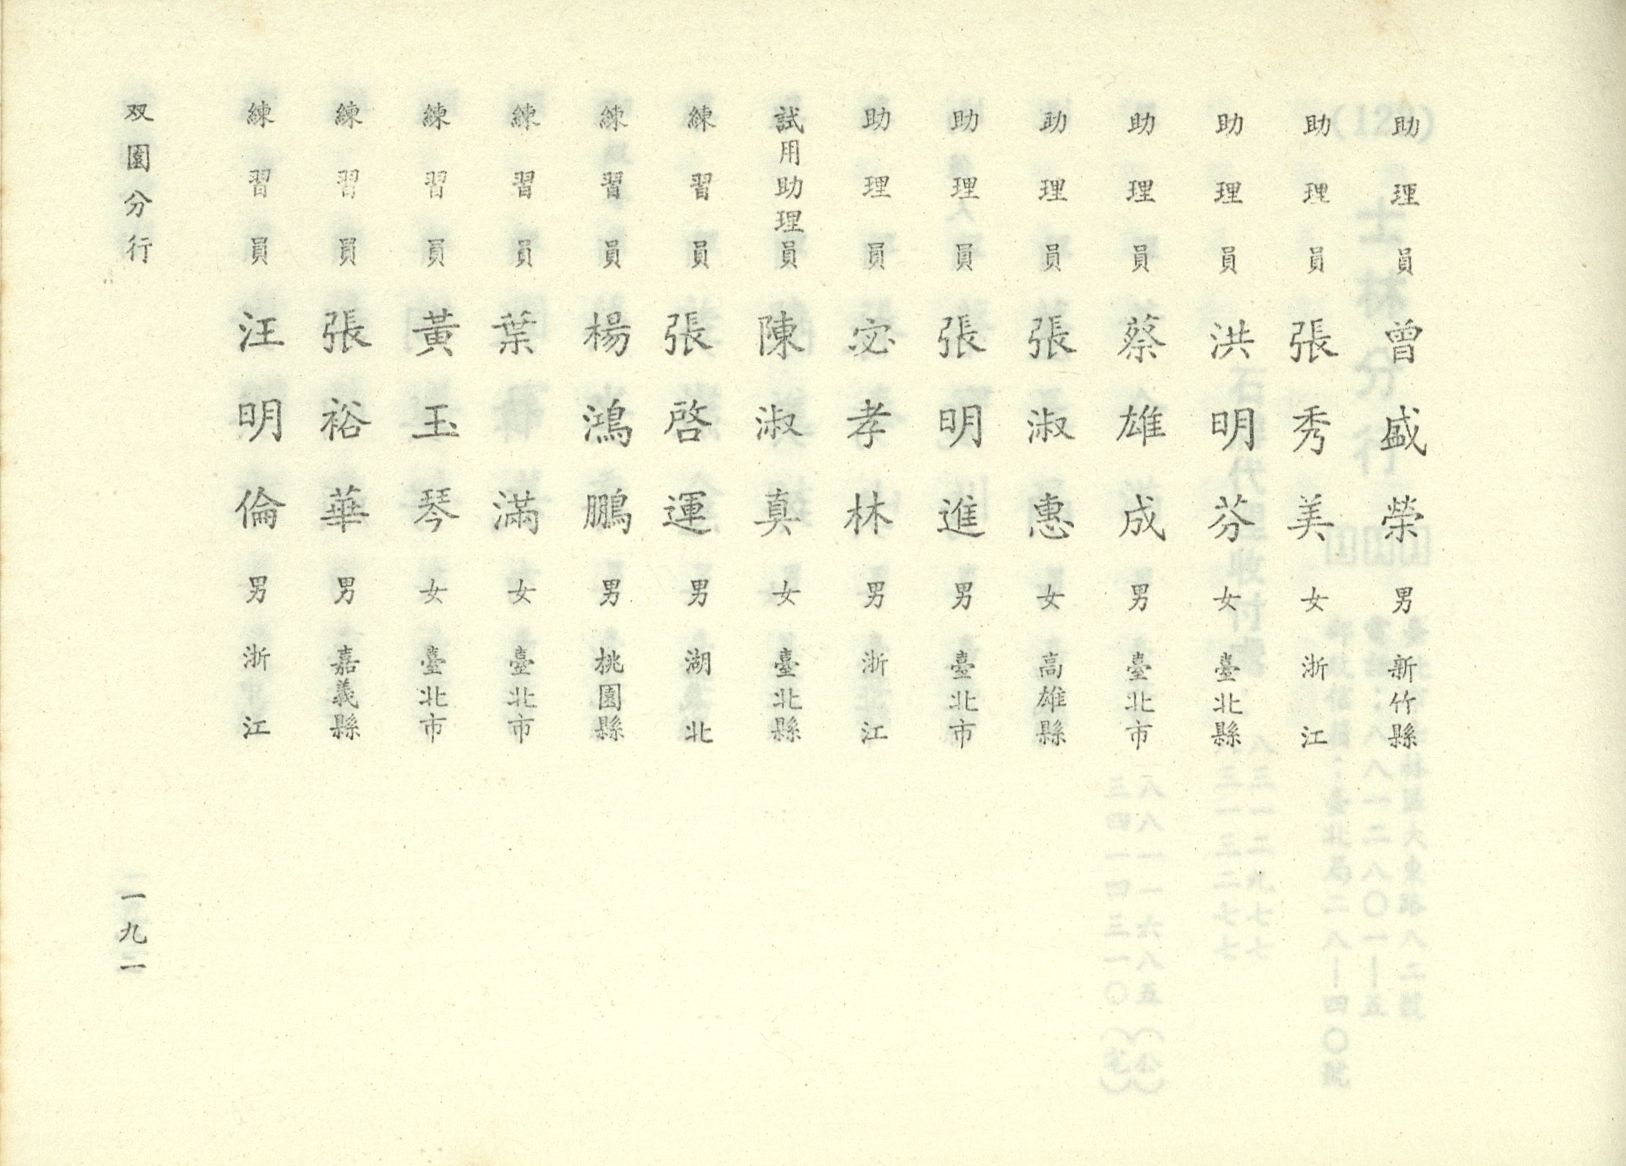 助理員 曾盛榮 男 新竹縣
助理員 張秀美 女 浙江
助理員 洪明芬 女 臺北縣
助理員 蔡雄成 男 臺北市
助理員 張淑惠 女 高雄縣
助理員 張明進 男 臺北市
助理員 宓孝林 男 浙江
試用助理員 陳淑真 女 臺北縣
練習員 張啓運 男 湖北
練習員 楊鴻鵬 男 桃園縣
練習員 葉滿 女 臺北市
練習員 黃玉琴 女 臺北市
練習員 張裕華 男 嘉義縣
練習員 汪明倫 男 浙江
双園分行
一九一